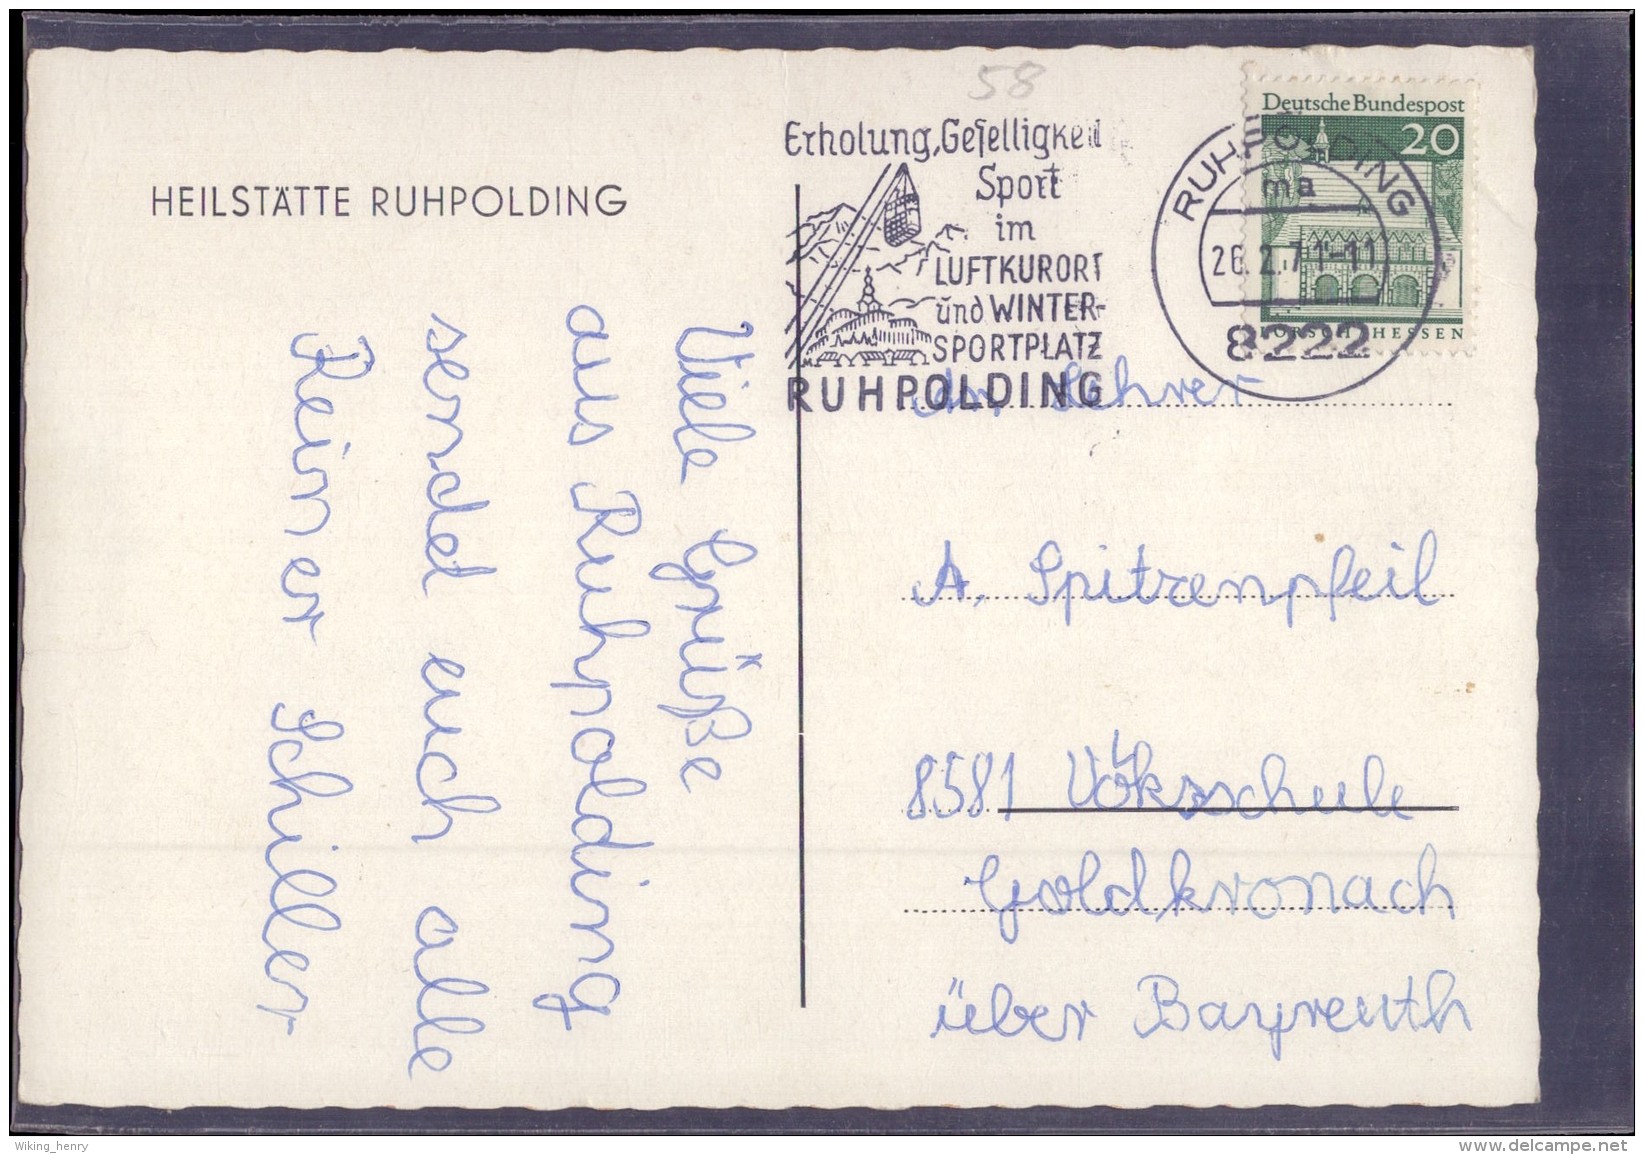 58
HEILSTÄTTE RUHPOLDING
Viele Grüße
aus Ruhpolding
sendet euch alle
Reiner Schiller
Erholung, Geselligkeit
Sport
im
LUFTKURORT
und WINTER-
SPORTPLATZ
RUHPOLDING
RUHPOLDING
ma
26.2.71-11
8222
Deutsche Bundespost
20
LORSCH HESSEN
An Lehrer
A. Spitzenpfeil
8581 Volksschule
Goldkronach
über Bayreuth
Wiking_henry
delcampe.net